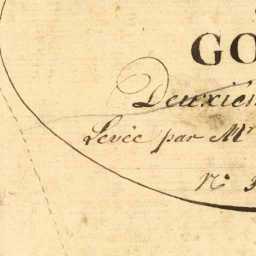 GO
Deuxien
Levée par Mr
N.